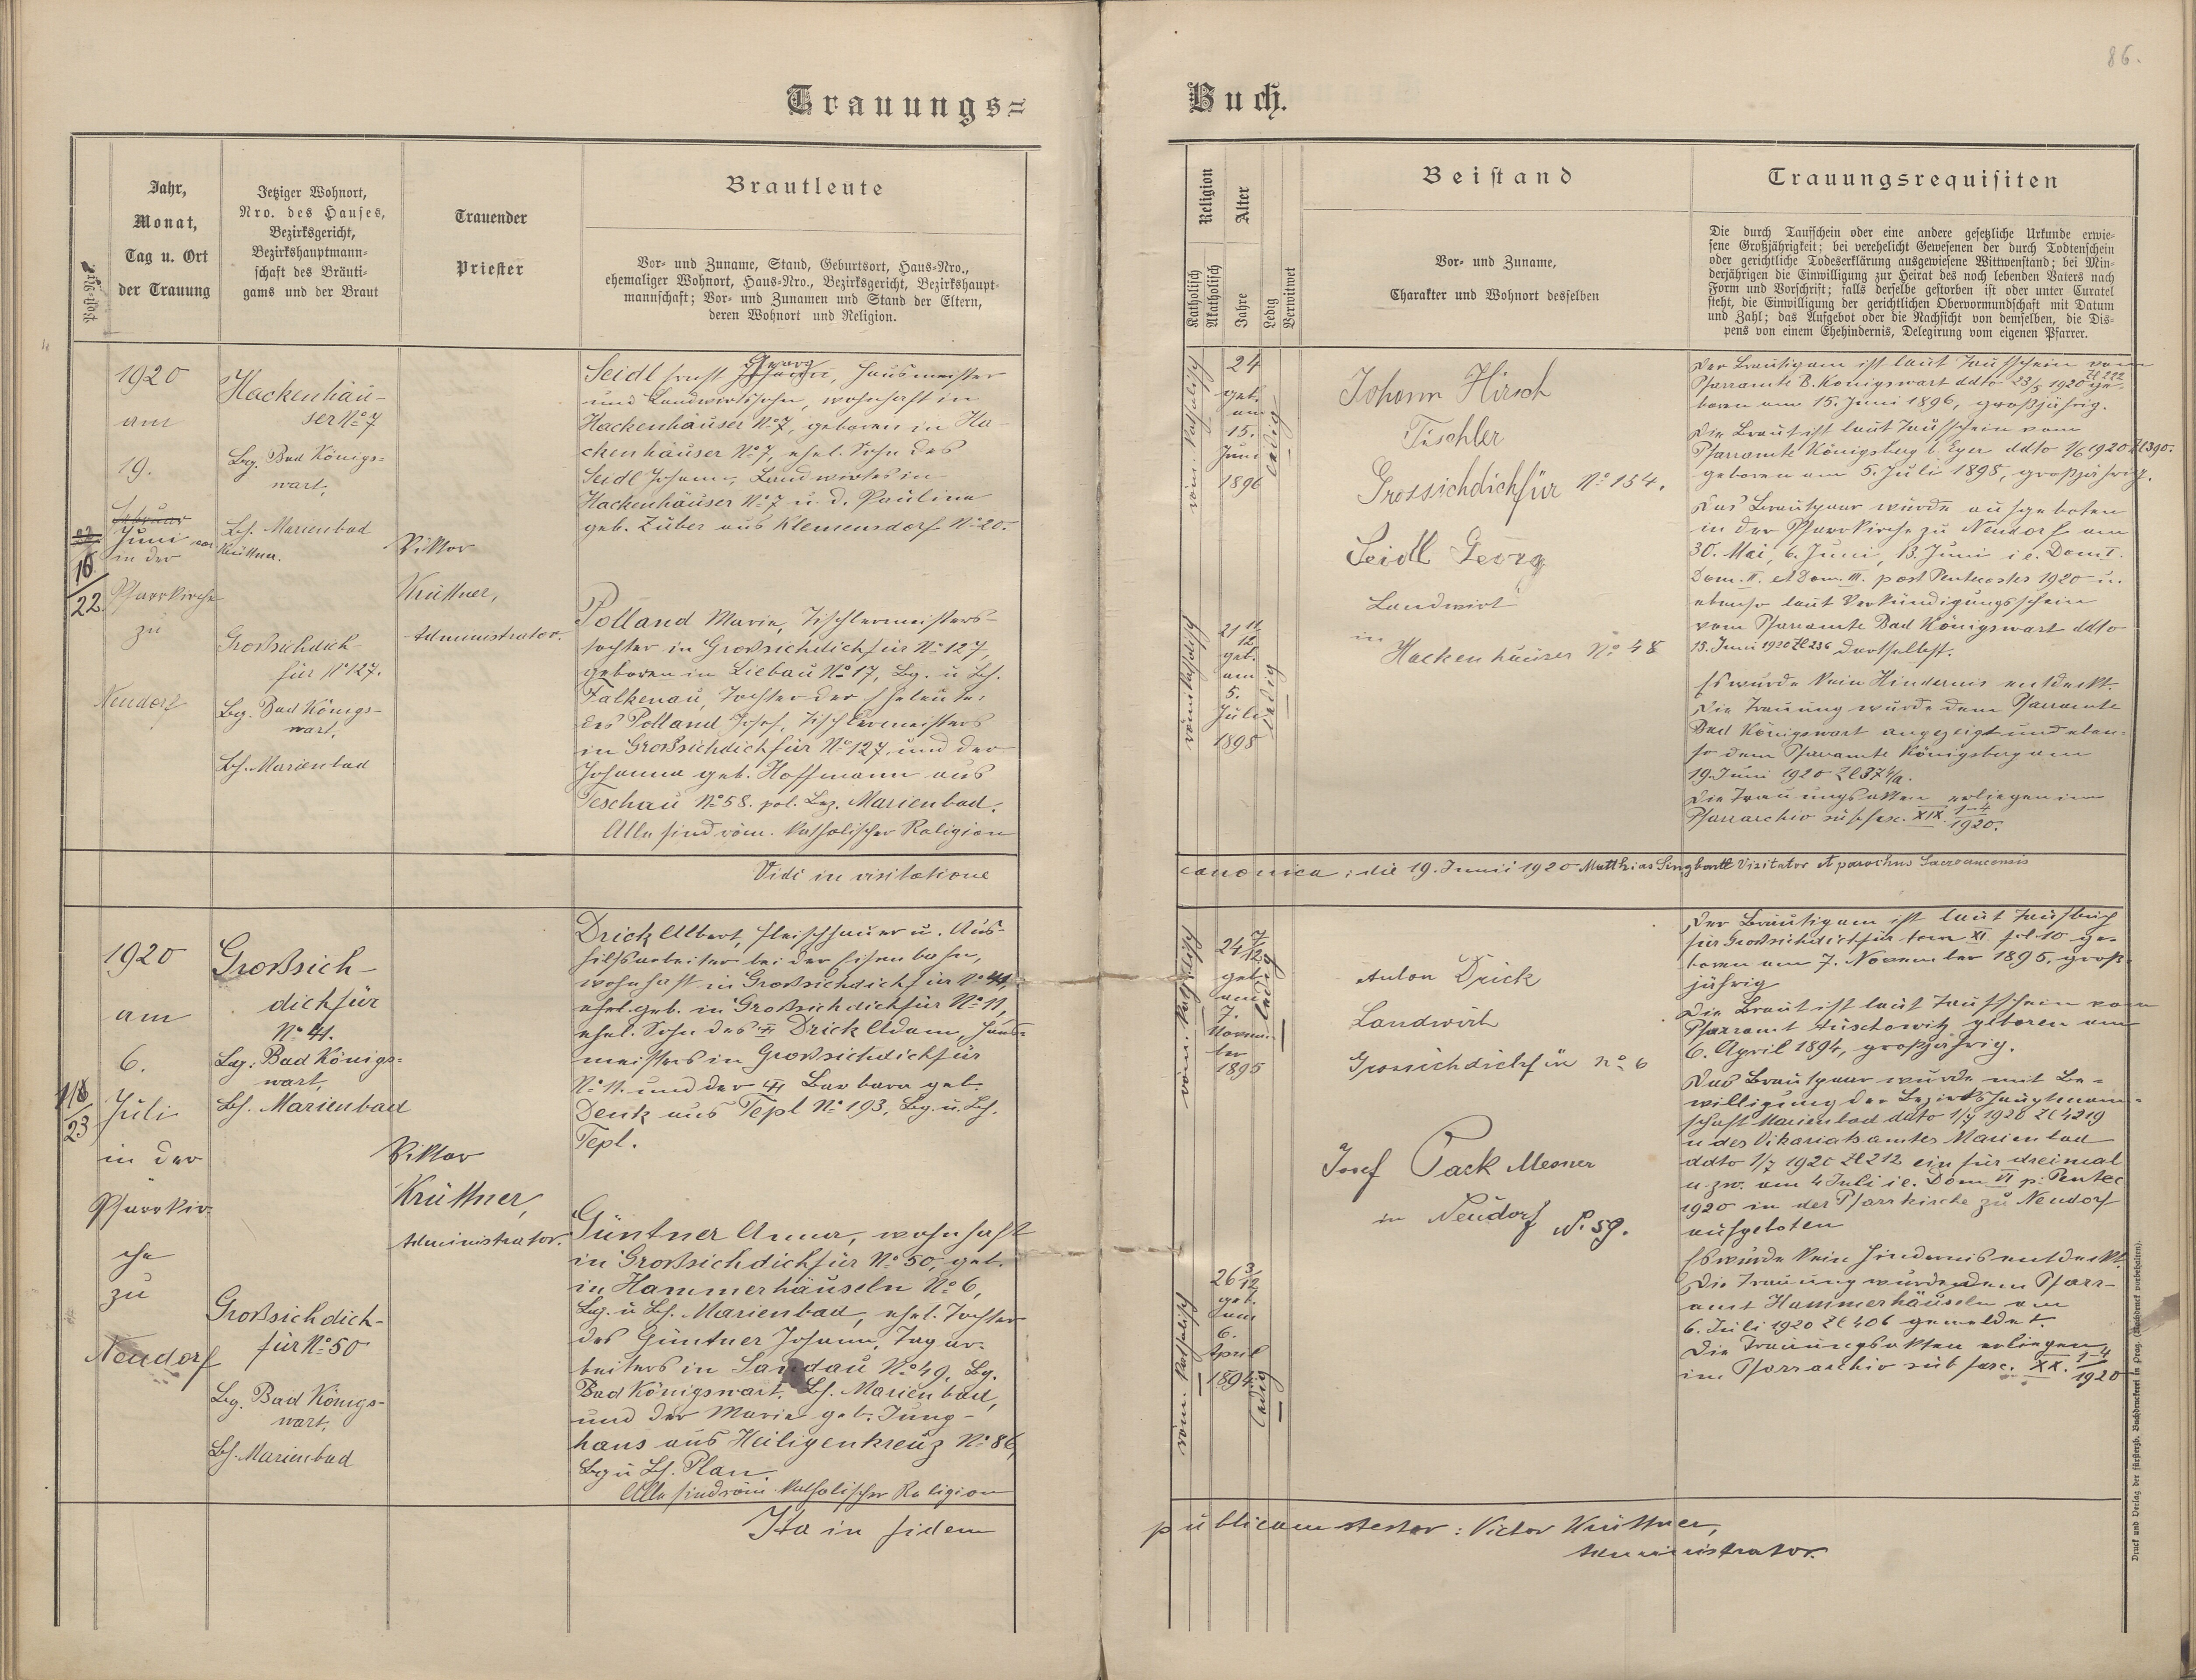 86.
Trauungs=
Buch.
Jahr,
Monat,
Tag u. Ort
der Trauung
Jetziger Wohnort,
Nro. des Hauses,
Bezirksgericht,
Bezirkshauptmann-
schaft des Bräuti-
gams und der Braut
Trauender
Priester
Brautleute
Vor- und Zuname, Stand, Geburtsort, Haus-Nro.,
ehemaliger Wohnort, Haus-Nro., Bezirksgericht, Bezirkshaupt-
mannschaft; Vor- und Zunamen und Stand der Eltern,
deren Wohnort und Religion.
Religion
Katholisch
Akatholisch
Alter
Jahre
Ledig
Verwitwet
Beistand
Vor- und Zuname,
Charakter und Wohnort desselben
Trauungsrequisiten
Die durch Taufschein oder eine andere gesetzliche Urkunde erwie-
sene Großjährigkeit; bei verehelicht Gewesenen der durch Todtenschein
oder gerichtliche Todeserklärung ausgewiesene Wittwenstand; bei Min-
derjährigen die Einwilligung zur Heirat des noch lebenden Vaters nach
Form und Vorschrift; falls derselbe gestorben ist oder unter Curatel
steht, die Einwilligung der gerichtlichen Obervormundschaft mit Datum
und Zahl; das Aufgebot oder die Nachsicht von demselben, die Dis-
pens von einem Ehehindernis, Delegirung vom eigenen Pfarrer.
16
22
1920
am
19.
Juni
in der
Pfarrkirche
zu
Neudorf
Hackenhäu-
ser No 7
Bg. Bad Königs-
wart,
Bh. Marienbad
Großsichdich-
für No 127.
Bg. Bad Königs-
wart,
Bh. Marienbad
Viktor
Krüttner,
Administrator.
Georg
Seidl Ernst, Hausmeister
und Landwirtssohn, wohnhaft in
Hackenhäuser No 7, geboren in Ha-
ckenhäuser No 7, ehel. Sohn des
Seidl Johann, Landwirtes in
Hackenhäuser No 7 u. d. Paulina
geb. Zuber aus Klemensdorf No 20.
Polland Maria, Tischlermeisters-
tochter in Großsichdichfür No 127,
geboren in Liebau No 17, Bg. u. Bh.
Falkenau, Tochter der Eheleute:
des Polland Josef, Tischlermeisters
in Großsichdichfür No 127, und der
Johanna geb. Hoffmann aus
Teschau No 58. pol. Bez. Marienbad.
Alle sind röm. katholischer Religion
röm. katholisch
24
geb.
am
15.
Juni
1896
ledig
röm. katholisch
21 11/12
geb.
am
5.
Juli
1898
ledig
Johann Hirsch
Tischler
Grossichdichfür No 154.
Seidl Georg
Landwirt
in
Hackenhäuser No 48
Der Bräutigam ist laut Taufschein vom
Pfarramte B. Königswart ddto 23/5 1920 Zl 222 ge-
boren am 15. Juni 1896, großjährig.
Die Braut ist laut Taufschein vom
Pfarramte Königsberg b. Eger ddto 1/6 1920 Zl 390.
geboren am 5. Juli 1898, großjährig.
Das Brautpaar wurde aufgeboten
in der Pfarrkirche zu Neudorf am
30. Mai, 6. Juni, 13. Juni i. e. Dom I.
Dom. II. et Dom. III. post Pentecostes 1920 u.
ebenso laut Verkündigungsschein
vom Pfarramte Bad Königswart ddto
13. Juni 1920 Zl 236 dortselbst.
Es wurde kein Hindernis entdeckt.
Die Trauung wurde dem Pfarramte
Bad Königswart angezeigt und eben-
so dem Pfarramte Königsberg am
19. Juni 1920 Zl 374/a.
Die Trauungsakten erliegen im
Pfarrarchiv sub fasc. XIX. 1-4/1920.
Vidi in visitatione
canonica; die 19. Junii 1920 Matthias Singbartl Visitator et parochus
118
23
1920
am
6.
Juli
in der
Pfarrkir-
che
zu
Neudorf
Großsich-
dichfür
No 41.
Bg. Bad Königs-
wart,
Bh. Marienbad
Großsichdich-
für No 50
Bg. Bad Königs-
wart,
Bh. Marienbad
Viktor
Krüttner,
Administrator.
Drick Albert, Fleischhauer u. Aus-
hilfsarbeiter bei der Eisenbahn,
wohnhaft in Großsichdichfür No 41,
ehel. geb. in Großsichdichfür No 11,
ehel. Sohn des Drick Adam, Haus-
meisters in Großsichdichfür
No 11. und der Barbara geb.
Denk aus Tepl No 193, Bg. u. Bh.
Tepl.
Güntner Anna, wohnhaft
in Großsichdichfür No 50, geb.
in Hammerhäuseln No 6,
Bg. u Bh. Marienbad, ehel. Tochter
des Güntner Johann, Tagar-
beiters in Sandau No 49, Bg.
Bad Königswart, Bh. Marienbad,
und der Maria geb. Jung-
hans aus Heiligenkreuz No 86,
Bg u Bh. Plan.
Alle sind röm. katholischer Religion
röm. katholisch
24 7/12
geb.
am
7.
Novem-
ber
1895
ledig
röm. katholisch
26 3/12
geb.
am
6.
April
1894
ledig
Anton Drick
Landwirth
Grossichdichfür No 6
Josef Pack Mesner
in Neudorf N. 59.
Der Bräutigam ist laut Taufbuch
für Großsichdichfür tom XI. fol 10 ge-
boren am 7. November 1895, groß-
jährig
Die Braut ist laut Taufschein vom
Pfarramt Auschowitz geboren am
6. April 1894, großjährig.
Das Brautpaar wurde mit Be-
willigung der Bezirkshauptmann-
schaft Marienbad ddto 1/7 1920 Zl 4219
u des Vikariatsamtes Marienbad
ddto 1/7 1920 Zl 212 ein für dreimal
u. zw. am 4 Juli i. e. Dom VI p. Pentec
1920 in der Pfarrkirche zu Neudorf
aufgeboten
Es wurde kein Hindernis entdeckt.
Die Trauung wurde dem Pfarr-
amt Hammerhäuseln am
6. Juli 1920 Zl 406 gemeldet.
Die Trauungsakten erliegen
im Pfarrarchiv sub fasc. XX. 1-4/1920
Ita in fidem
publicam testor: Victor Krüttner,
Administrator.
Druck und Verlag der fürsterzb. Buchdruckerei in Prag. (Nachdruck vorbehalten).